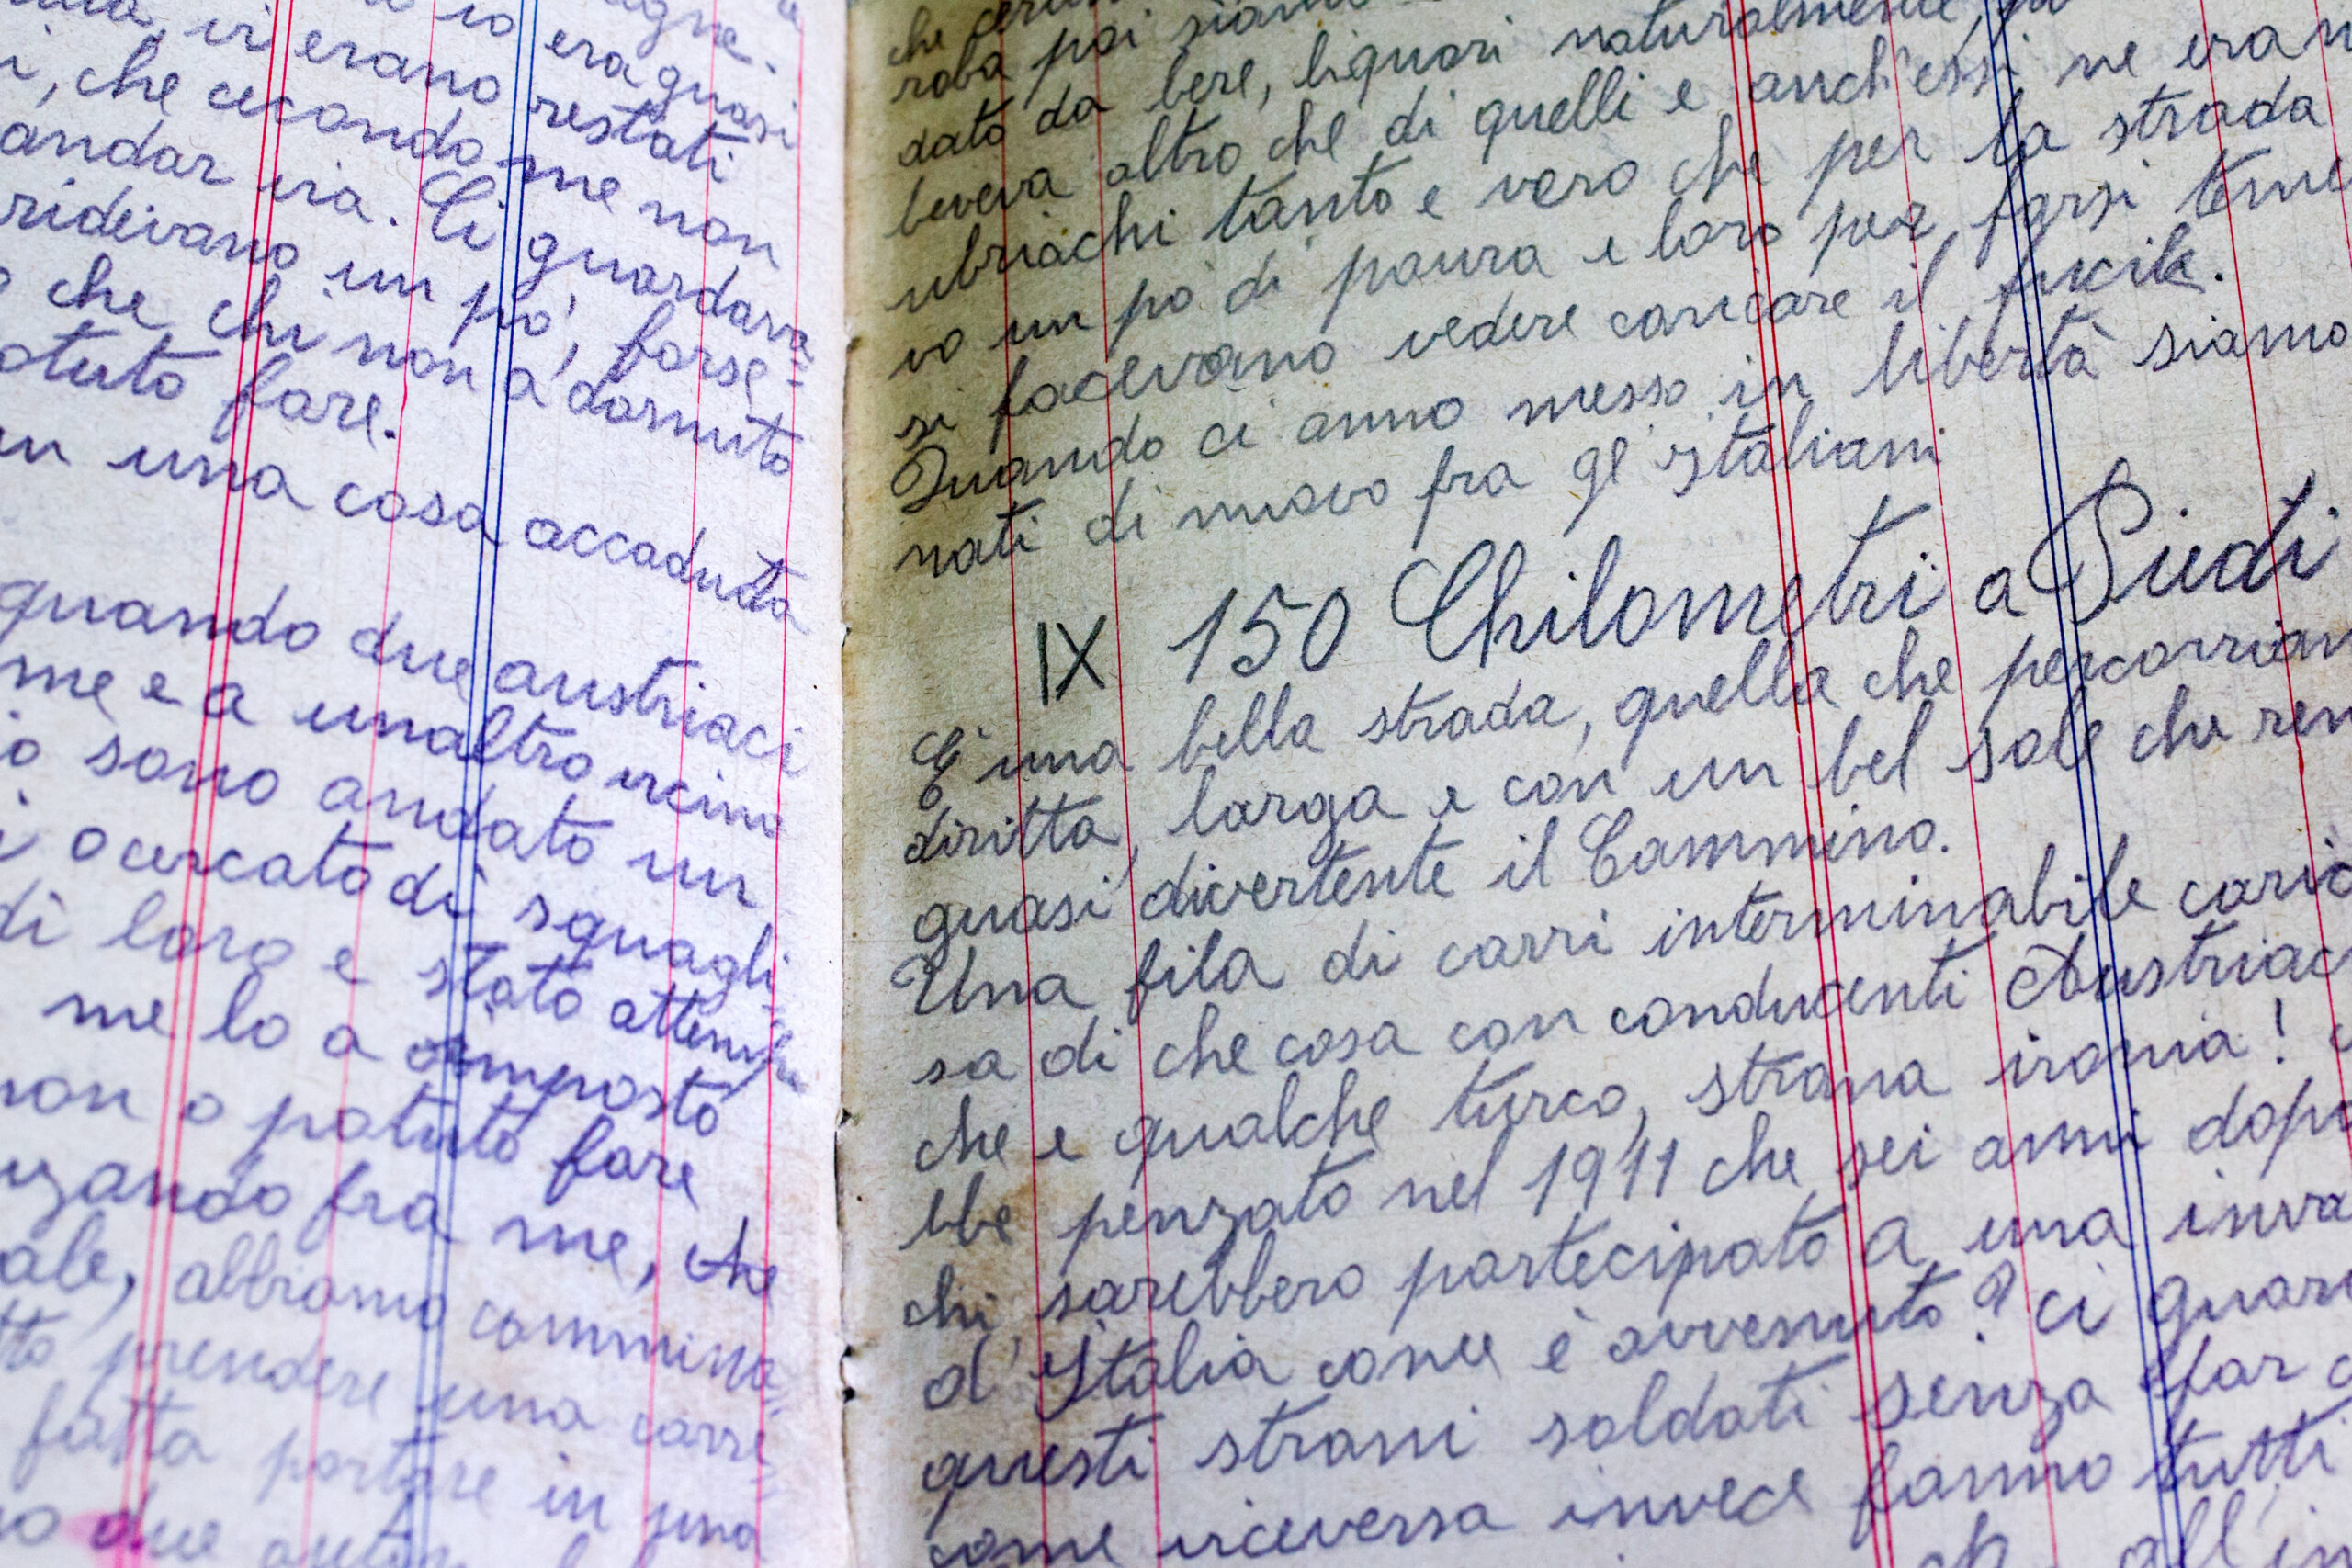 era quasi
vi erano restati
i, che secondo me non
andar via. Ci guardava
ridevano un po', forse
che chi non a dormito
otuto fare.
una cosa accaduta
quando due austriaci
me e a unaltro vicino
io sono andato un
i o cercato di squagli
di loro e stato
me lo a imposto
non o potuto fare
fra me, che
ale, abbiamo cammina
prendere una carre
fatta portare in una
due
che
roba poi siamo
dato da bere, liquori naturalmente,
beveva altro che di quelli e anch'essi ne eran
ubriachi tanto e vero che per la strada
vo un pò di paura e loro per farsi teme
si facevano vedere caricare il fucile.
Quando ci anno messo in libertà siamo
nati di nuovo fra gl'Italiani
IX 150 Chilometri a Piedi
E' una bella strada, quella che percorriam
diritta, larga e con un bel sole che ren
quasi divertente il Cammino.
Una fila di carri interminabile caric
sa di che cosa con conducenti Austriac
che e qualche turco, strana ironia!
bbe penzato nel 1911 che sei anni dopo
chi, sarebbero partecipato a una inva
d'Italia come è avvenuto? ci guar
questi strani soldati senza far
come viceversa invece fanno tutti